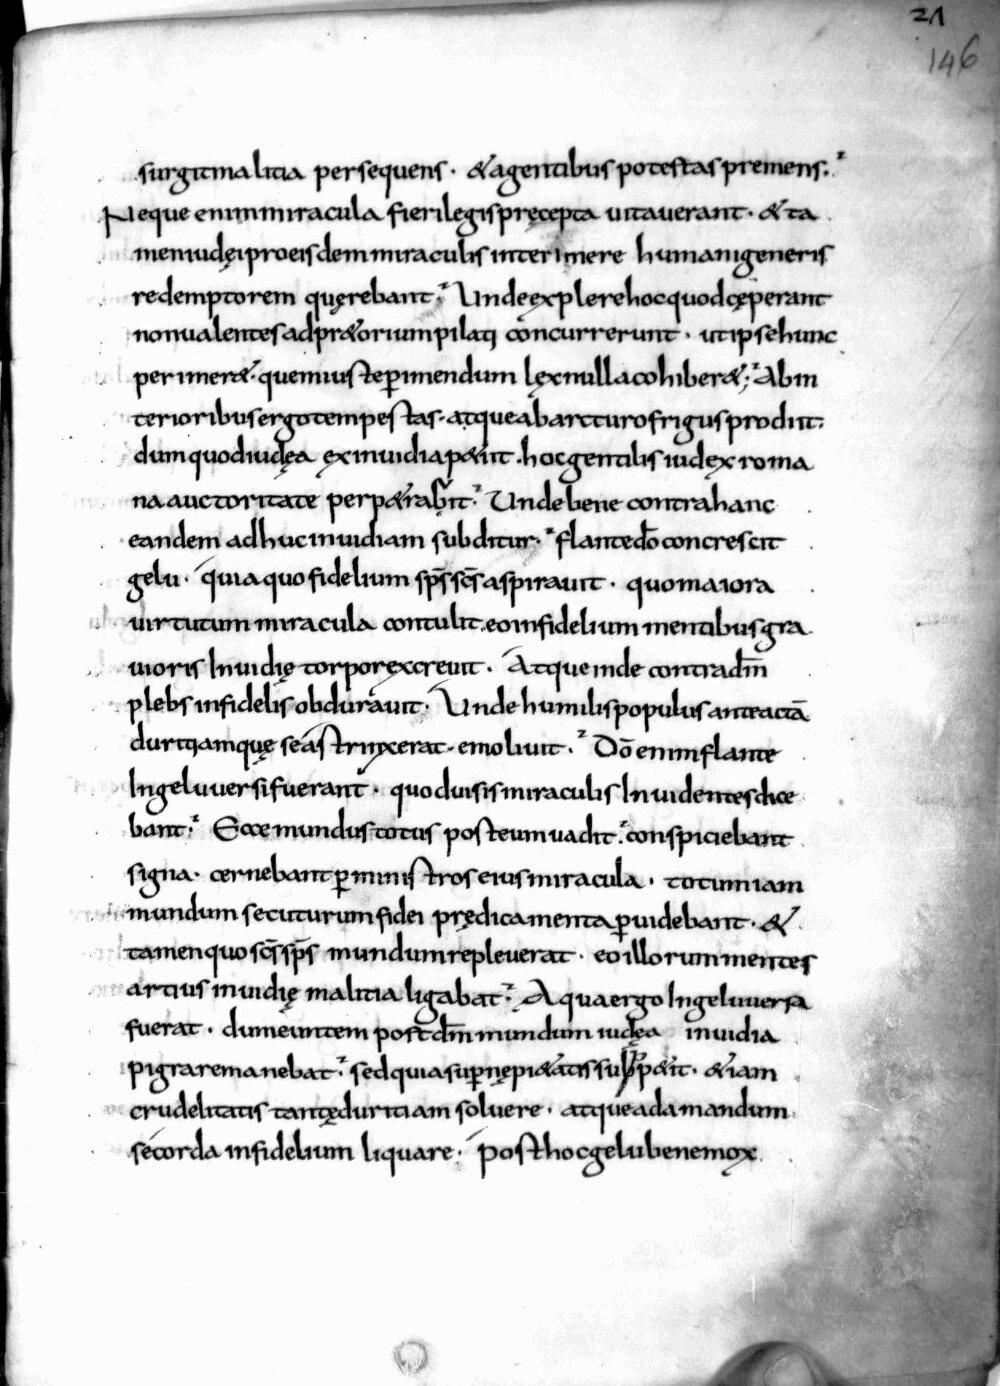 21
146
surgit malitia persequens · & a gentibus potestas premens.
Neque enim miracula fieri legis pręcepta vitaverant · & ta
men iudęi pro eisdem miraculis interimere humani generis
redemptorem quęrebant. Unde explere hoc quod cęperant
non valentes ad pr&orium pilati concurrerunt · ut ipse hunc
perimer& · quem iuste p̄imendum lęx nulla cohiber&; Ab in
terioribus ergo tempestas · atque ab arcturo frigus prodiit:
dum quod iudęa ex invidia p&iit · hoc gentilis iudęx roma
na auctoritate perp&rabit. Unde bene contra hanc
eandem adhuc invidiam subditur. flante dō concrescit
gelu · quia quo fidelium sp̄s sc̄s aspiravit · quo maiora
virtutum miracula contulit. eo infidelium mentibus gra
vioris Invidię torpor excrevit · Atque inde contra dm̄
plebs infidelis obduravit · Unde humilis populus ante actā
duritiam quę se astrinxerat · emolivit. Dō enim flante
In gelu versi fuerant · quod visis miraculis Invidentes dice
bant. Ecce mundus totus post eum vadit. conspiciebant
signa · cernebant p̄ ministros eius miracula · totum iam
mundum secuturum fidei prędicamenta p̄videbant · &
tamen quo sc̄s sp̄s mundum repleverat · eo illorum mentes
artius invidię malitia ligabat. Aqua ergo In gelu versa
fuerat · dum euntem post dm̄ mundum iudęa invidia
pigra remanebat. sed quia sup̄nę pi&atis p&iit · &iam
crudelitatis tantę duritiam solvere · atque ad amandum
se corda infidelium liquare · post hoc gelu bene mox